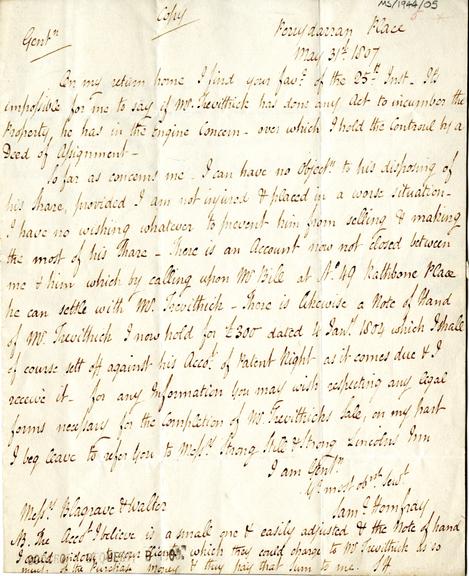 MS/1944/05
Copy
Gentn
Penydarran Place
May 31st 1807
On my return home I find your favr. of the 25th Inst - It's
impossible for me to say if Mr. Trevithick has done any Act to incumber the
Property he has in the Engine Concern - over which I hold the Controul by a
Deed of Assignment -
So far as concerns me - I can have no Objectn. to his disposing of
his Share, provided I am not injured & placed in a worse situation -
I have no wishing whatever to prevent him from selling & making
the most of his Share - There is an Account now not closed between
me & him which by calling upon Mr Bill at No. 49 Rathbone Place
he can settle with Mr. Trevithick - There is likewise a Note of Hand
of Mr Trevithick I now hold for £300 dated 4 Jany. 1804 which I shall
of course sett off against his Acco. of Patent Right as it comes due & I
receive it - for any Information you may wish respecting any legal
forms necessary for the Completion of Mr. Trevithicks Sale, on my part
I beg leave to refer you to Messrs. Strong Still & Strong Lincolns Inn
I am Gentn.
Yr. most obdt. Servt
Saml. Homfray
Messrs. Blagrave & Walter
NB. The Acct. I believe is a small one & easily adjusted & the Note of hand
I could indorse which they could charge to Mr Trevithick as so
much of the Purchase Money & they pay that Sum to me. SH